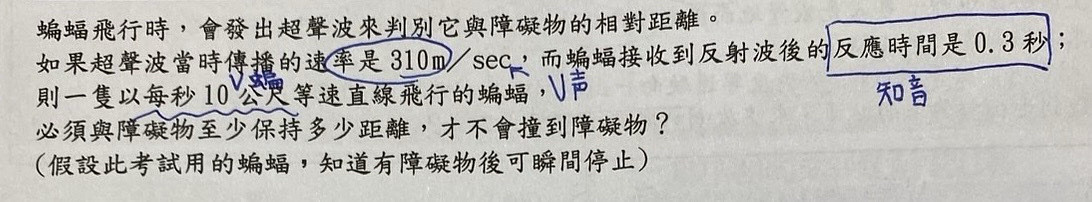 蝙蝠飛行時，會發出超聲波來判別它與障礙物的相對距離。
如果超聲波當時傳播的速率是 310m/sec，而蝙蝠接收到反射波後的反應時間是 0.3 秒；
V蝙 V声 知音
則一隻以每秒 10 公尺等速直線飛行的蝙蝠，
必須與障礙物至少保持多少距離，才不會撞到障礙物？
(假設此考試用的蝙蝠，知道有障礙物後可瞬間停止)